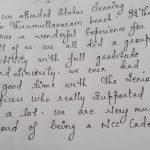 we attended Statue cleaning
Thirumullavaram beach
was a wonderful experience for
all of us. we all did a group
activity with full gratitude
and sincerity. we even had
good time with the senior
officers who really supported
a lot. we are very mu
proud of being a Ncc Cade